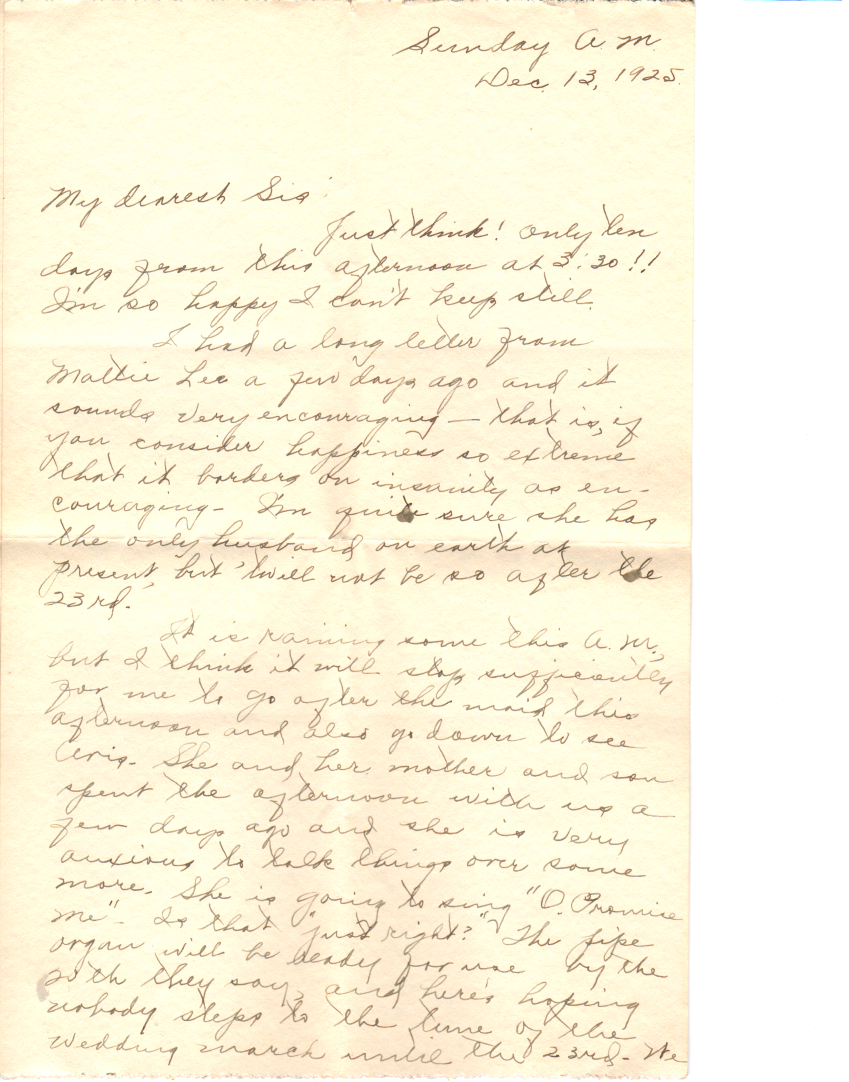 Sunday A.M.
Dec. 13, 1925.
My dearest Sis:
Just think! only ten
days from this afternoon at 3:30!!
I'm so happy I can't keep still.
I had a long letter from
Mattie Lee a few days ago and it
sounds very encouraging — that is, if
you consider happiness so extreme
that it borders on insanity as en-
couraging - I'm quite sure she has
the only husband on earth at
present, but 'twill not be so after the
23rd.
It is raining some this A.M.,
but I think it will stop sufficiently
for me to go after the maid this
afternoon and also go down to see
Avis. She and her mother and son
spent the afternoon with us a
few days ago and she is very
anxious to talk things over some
more. She is going to sing "O, Promise
Me". Is that "just right?" The pipe
organ will be ready for use by the
20th they say, and here's hoping
nobody steps to the tune of the
wedding march until the 23rd - We